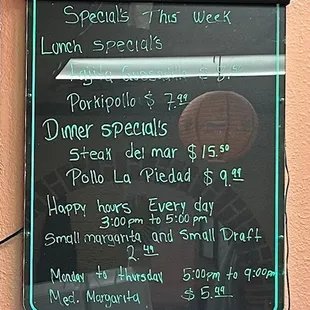 Special's This Week
Lunch special's
Fajita $
Porkipollo $ 7.99
Dinner special's
Steak del mar $15.50
Pollo La Piedad $ 9.99
Happy hours Every day
3:00pm to 5:00pm
Small margarita and Small Draft
2.49
Monday to thursday 5:00pm to 9:00pm
Med. Margarita $ 5.99